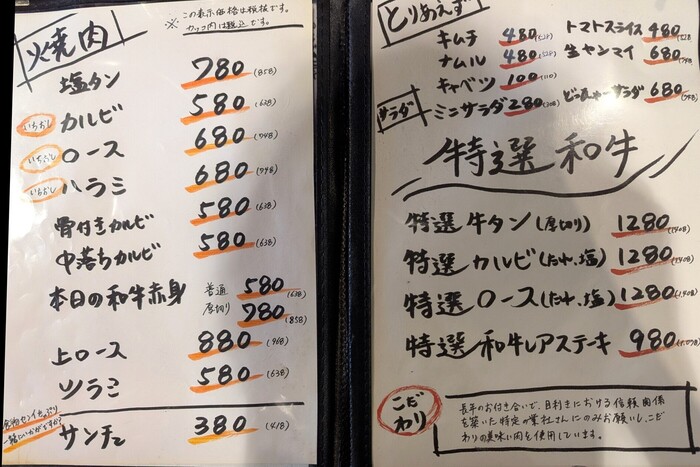 焼肉
※この表示価格は税抜です。
カッコ内は税込です。
塩タン 780(858)
いちおし カルビ 580(638)
いちおし ロース 680(748)
いちおし ハラミ 680(748)
骨付きカルビ 580(638)
中落ちカルビ 580(638)
本日の和牛赤身 普通 580(638)
厚切り 780(858)
上ロース 880(968)
ツラミ 580(638)
一緒にいかがですか?
サンチュ 380(418)
とりあえず
キムチ 480(528)
ナムル 480(528)
キャベツ 100(110)
トマトスライス 480(528)
生センマイ 680(748)
サラダ
ミニサラダ 280(308)
どーむちゃーサラダ 680(748)
特選和牛
特選牛タン(厚切り) 1280(1408)
特選カルビ(たれ、塩) 1280(1408)
特選ロース(たれ、塩) 1280(1408)
特選和牛レアステーキ 980(1078)
こだわり
長年のお付き合いで、目利きにおける信頼関係
を築いた特定の業社さんにのみお願いし、こだ
わりの美味い肉を使用しています。